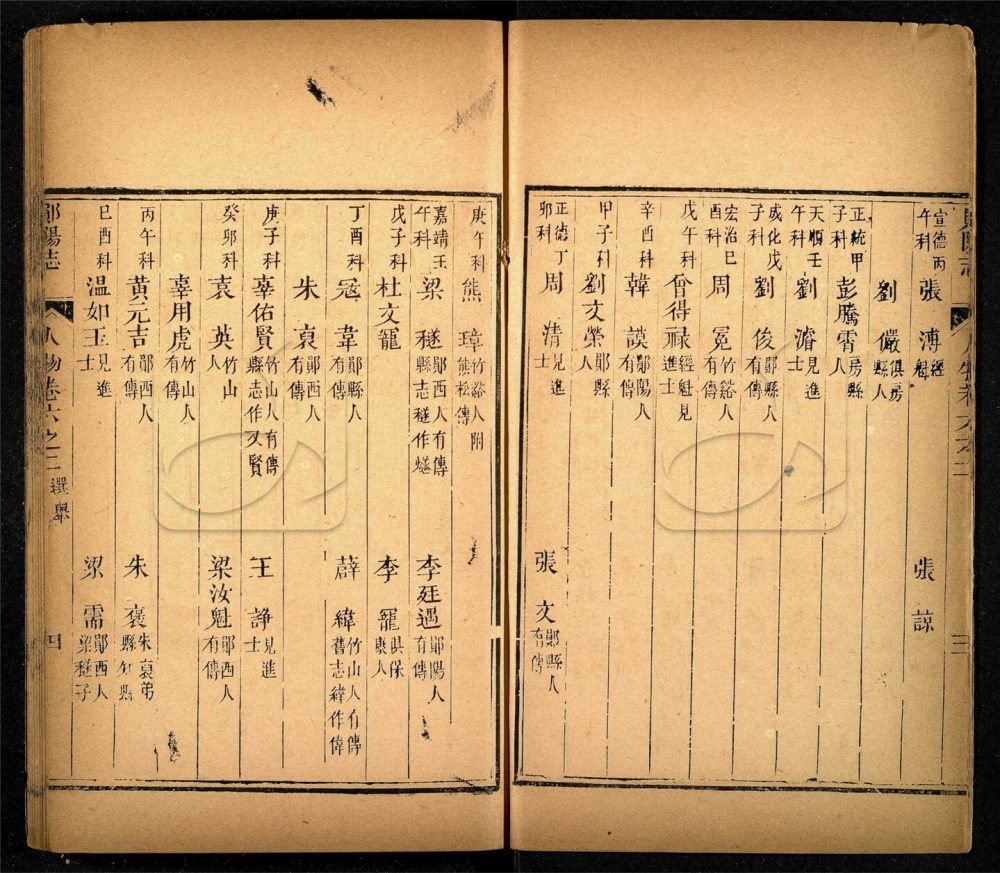 鄖陽志 人物卷六之二 三
宣德丙午科 張溥 經魁 張諒
劉儼 俱房縣人
正統甲子科 彭騰霄 房縣人
天順壬午科 劉濬 見進士
成化戊子科 劉俊
宏治己酉科 周冕 竹谿人有傳
戊午科 會得祿 經魁見進士
辛酉科 韓謨 鄖陽人有傳
甲子科 劉文榮 鄖縣人
正德丁卯科 周清 見進士 張文 鄖縣人有傳
庚午科 熊璋 竹谿人附熊松傳
嘉靖壬午科 梁𣜩 鄖西人有傳縣志𣜩作燧 李廷遇 鄖陽人有傳
戊子科 杜文寵 李寵 俱保康人
丁酉科 冦韋 鄖縣人有傳 薛緯 竹山人有傳舊志緯作偉
朱裒 鄖西人有傳
庚子科 辜佑賢 竹山人有傳縣志作又賢 王諍 見進士
癸卯科 袁英 竹山人 梁汝魁 鄖西人有傳
辜用虎 竹山人有傳
丙午科 黃元吉 鄖西人有傳 朱褒 朱裒弟縣知縣
己酉科 温如玉 見進士 梁需 鄖西人梁𣜩子
鄖陽志 人物卷六之二 選舉 四